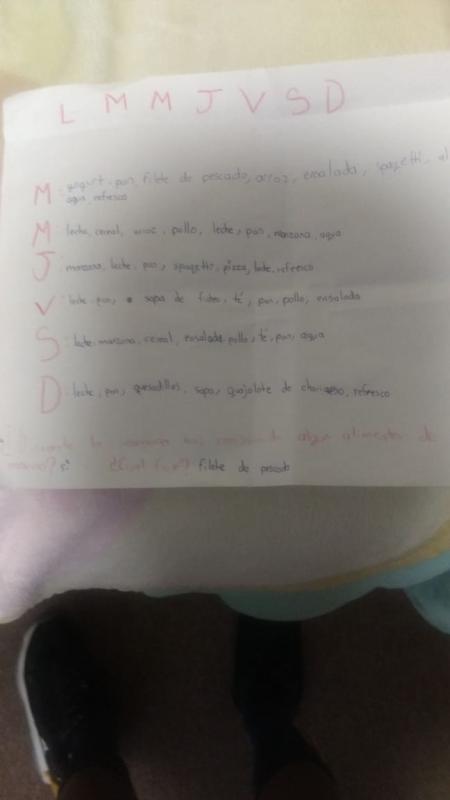 L M M J V S D
M: yogurt, pan, filete de pescado, arroz, ensalada, spagetti,
agua, refresco
M: leche, cereal, arroz, pollo, leche, pan, manzana, agua
J: manzana, leche, pan, spaguetti, pizza, leche, refresco
V: leche, pan, sopa de fideo, té, pan, pollo, ensalada
S: leche, manzana, cereal, ensalada, pollo, té, pan, agua
D: leche, pan, quesadillas, sopa, guajolote de chorizo, refresco
¿Durante la semana has consumido algun alimento de
marino? si ¿Cual fue? filete de pescado